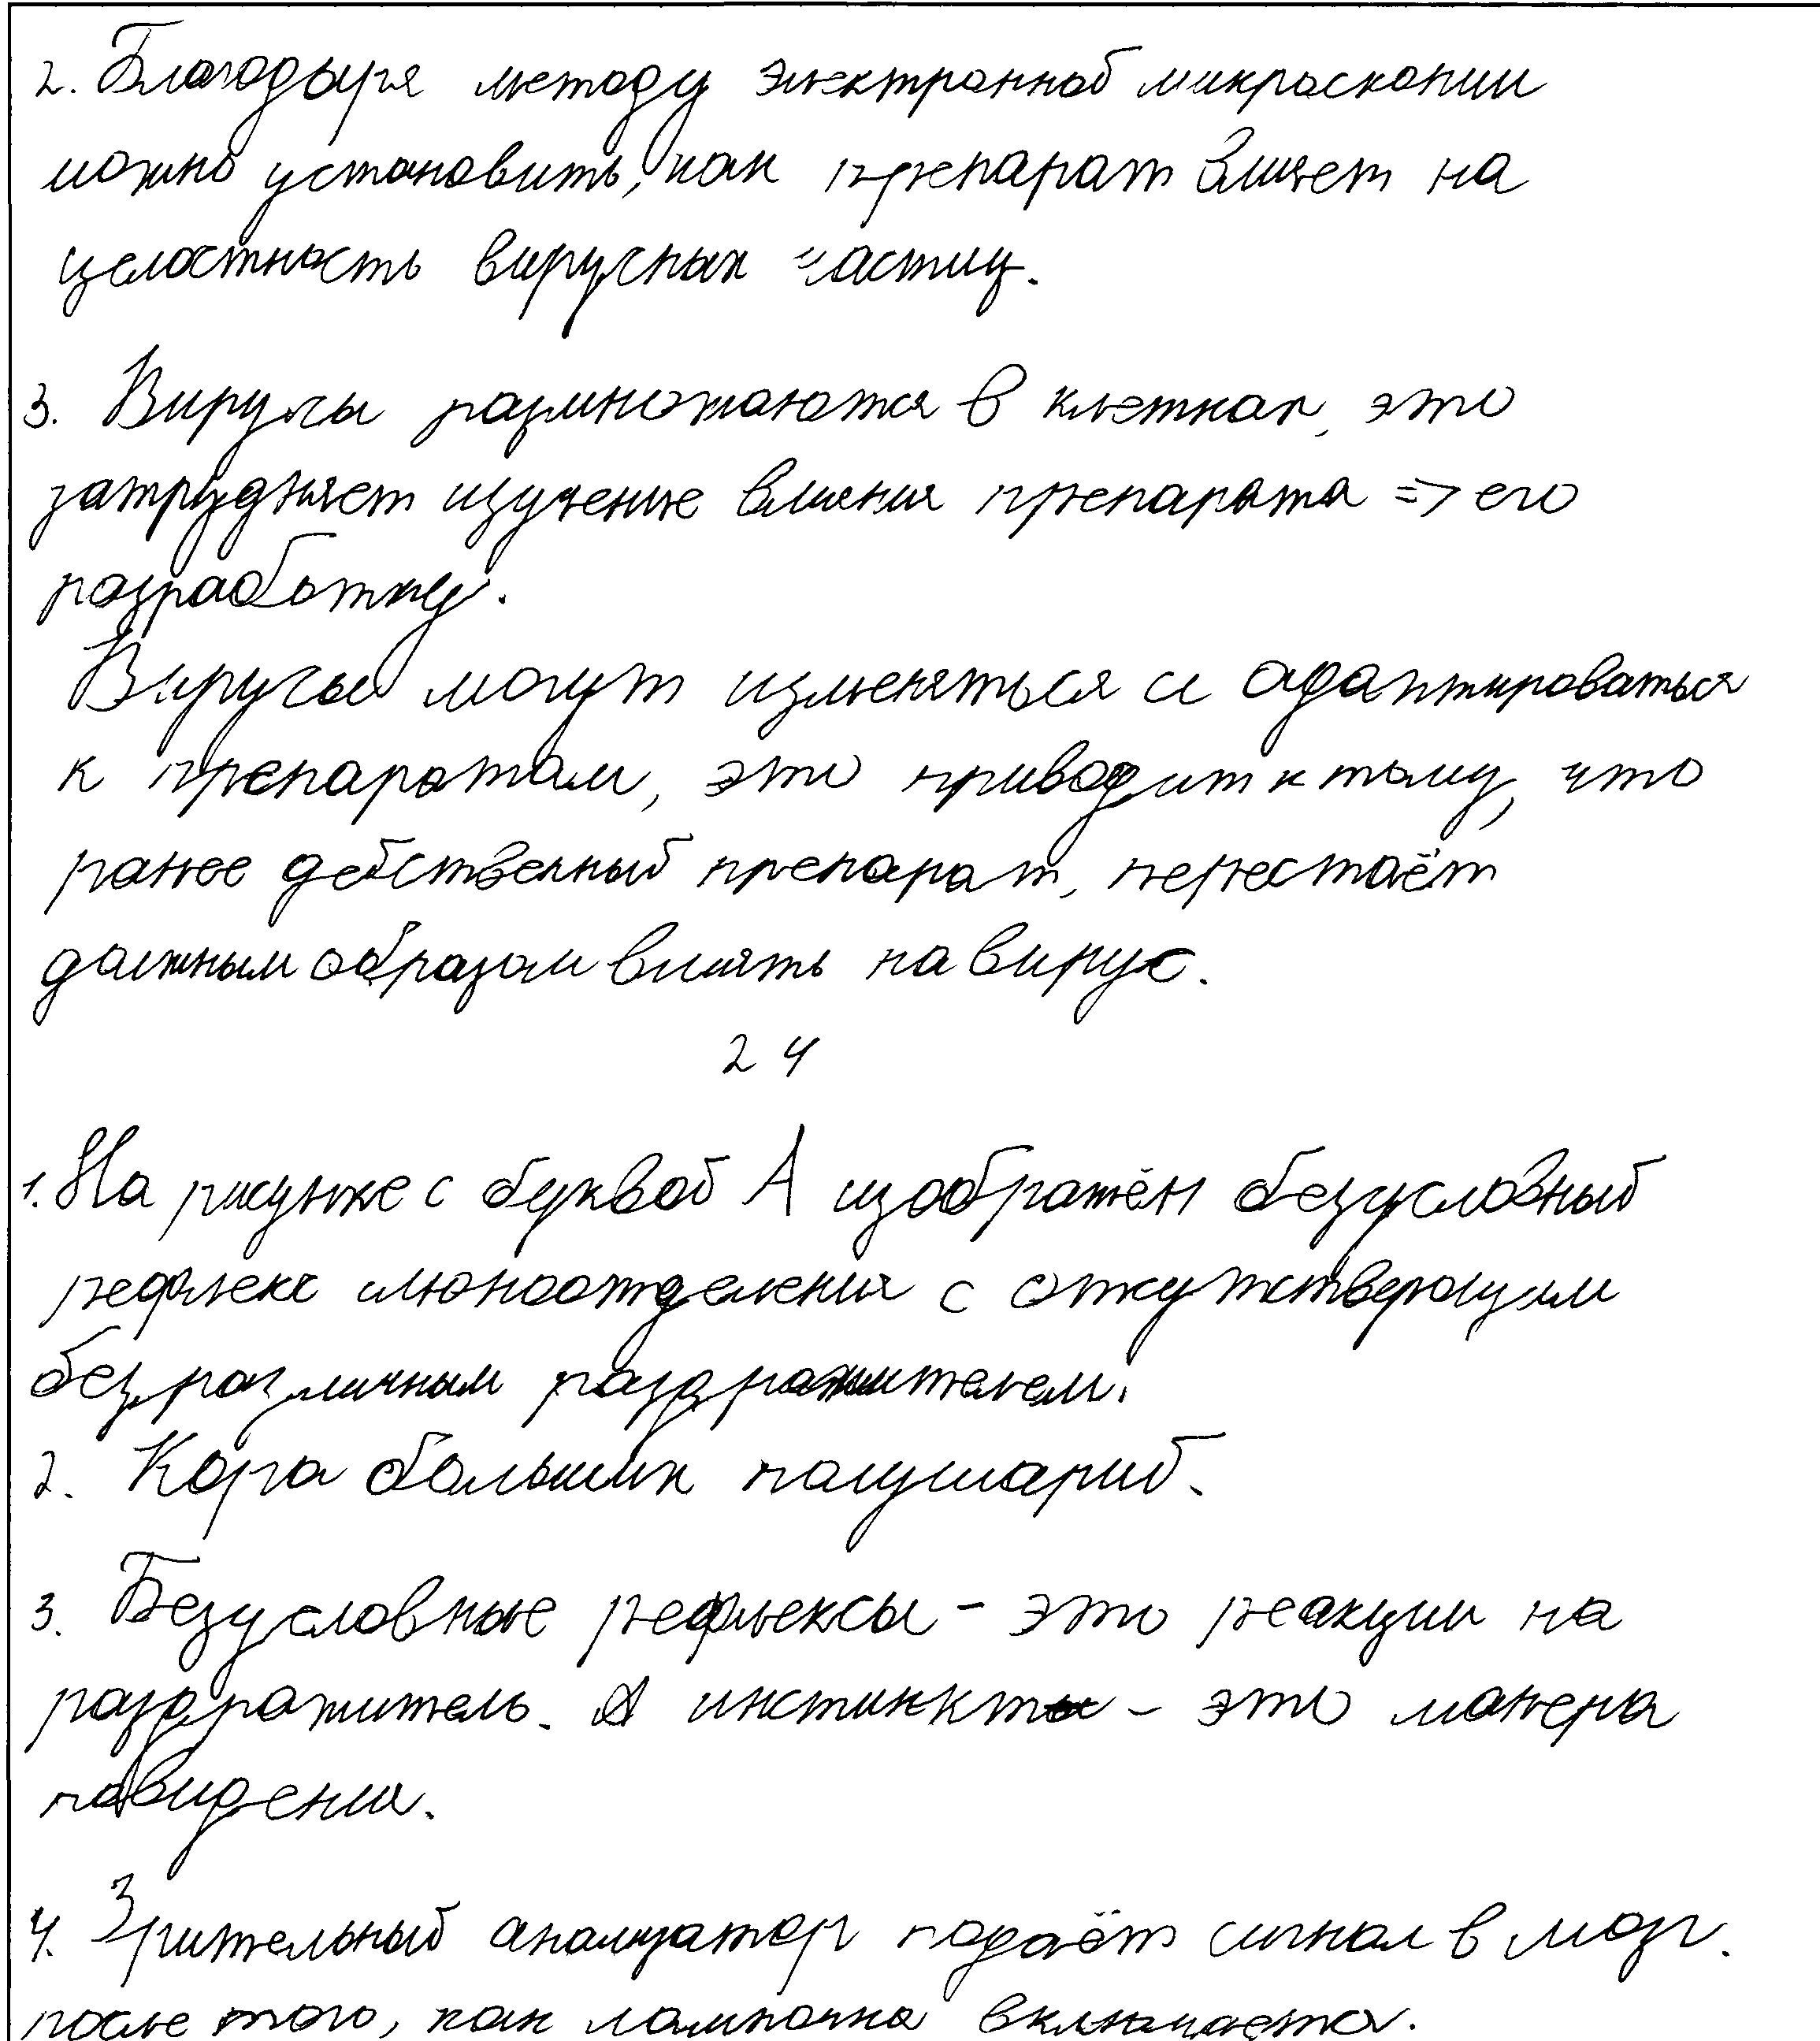 2. Благодаря методу электронной микроскопии
можно установить, как препарат влияет на
целостность вирусных частиц.
3. Вирусы размножаются в клетках, это
затрудняет изучение влияния препарата => его
разработку.
Вирусы могут изменяться и адаптироваться
к препаратам, это приводит к тому, что
ранее действенный препарат, перестаёт
должным образом влиять на вирус.
24
1. На рисунке с буквой А изображён безусловный
рефлекс слюноотделения с
безразличным раздражителем.
2. Кора больших полушарий.
3. Безусловные рефлексы - это реакции на
раздражитель. А инстинкты - это манера
повидения.
4. Зрительный анализатор подаёт сигнал в мозг.
после того, как лампочка включается.